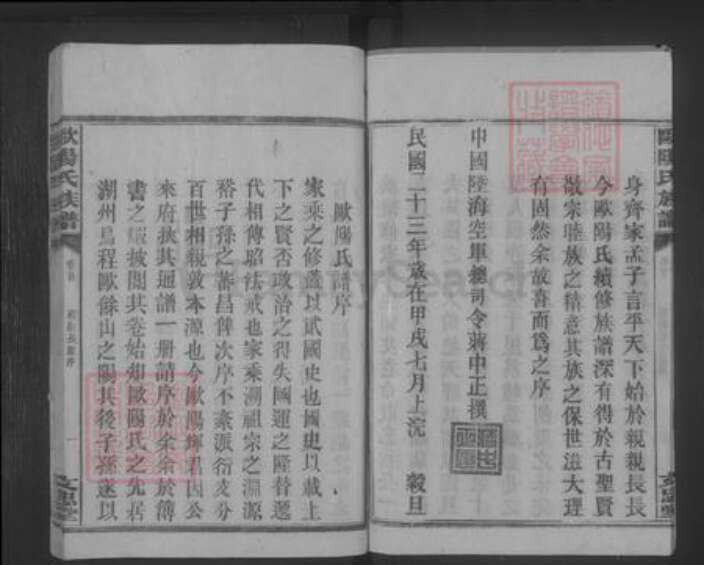 歐陽氏族譜
身齊家孟子言平天下始於親親長長
今歐陽氏續修族譜深有得於古聖賢
敬宗睦族之精意其族之保世滋大理
有固然余故喜而為之序
中國陸海空軍總司令蔣中正撰
民國二十三年歲在甲戌七月上浣 穀旦
歐陽氏譜序
家乘之修蓋以貳國史也國史以載上
下之賢否政治之得失國運之隆替遞
代相傳昭法戒也家乘溯祖宗之淵源
裕子孫之蕃昌俾次序不紊派衍支分
百世相親敦本源也今歐陽輝君因公
來府挾其通譜一册請序於余余於傳
書之 披閱其卷始知歐陽氏之先居
湖州烏程歐餘山之陽其後子孫遂以
歐陽氏族譜
卷首
一